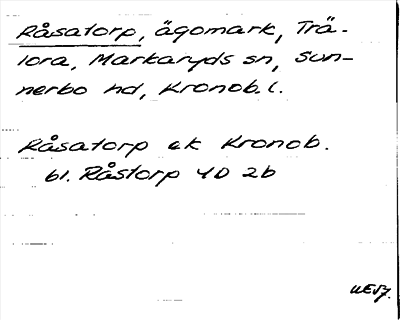 Råsatorp, ägomark, Trä-
lora, Markaryds sn, Sun-
nerbo hd, Kronob.l.
Råsatorp ek Kronob.
bl. Råstorp 4D 2b